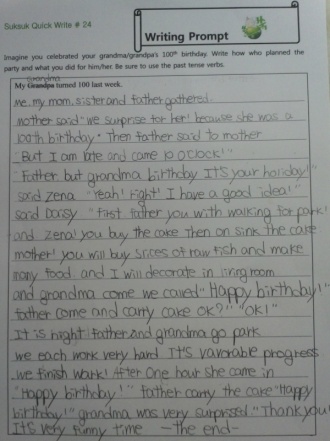 Suksuk Quick Write # 24
Writing Prompt
Imagine you celebrated your grandma/grandpa's 100th birthday. Write how who planned the
party and what you did for him/her. Be sure to use the past tense verbs.
grandma
My Grandpa turned 100 last week.
Me, my mom, sister and father gathered.
mother said "we surprise for her! because she was a
100th birthday" Then father said to mother
"But I am late and came 10 o'clock!"
"Father but grandma birthday It's your holiday!"
said zena "Yeah! Right! I have a good idea!"
said Daisy "First father you with walking for park!
and zena! you buy the cake Then on sink the cake
mother! you will buy slices of raw fish and make
many food and I will decorate in living room
and grandma come we called "Happy birthday!"
father come and carry cake OK?" "OK!"
It is night father and grandma go park
we each work very hard It's vavorable progress
we finish work! After one hour she came in
"Happy birthday!" father carry the cake "Happy
birthday!" grandma was very surprissed "Thank you!
It's very funny time -the end-